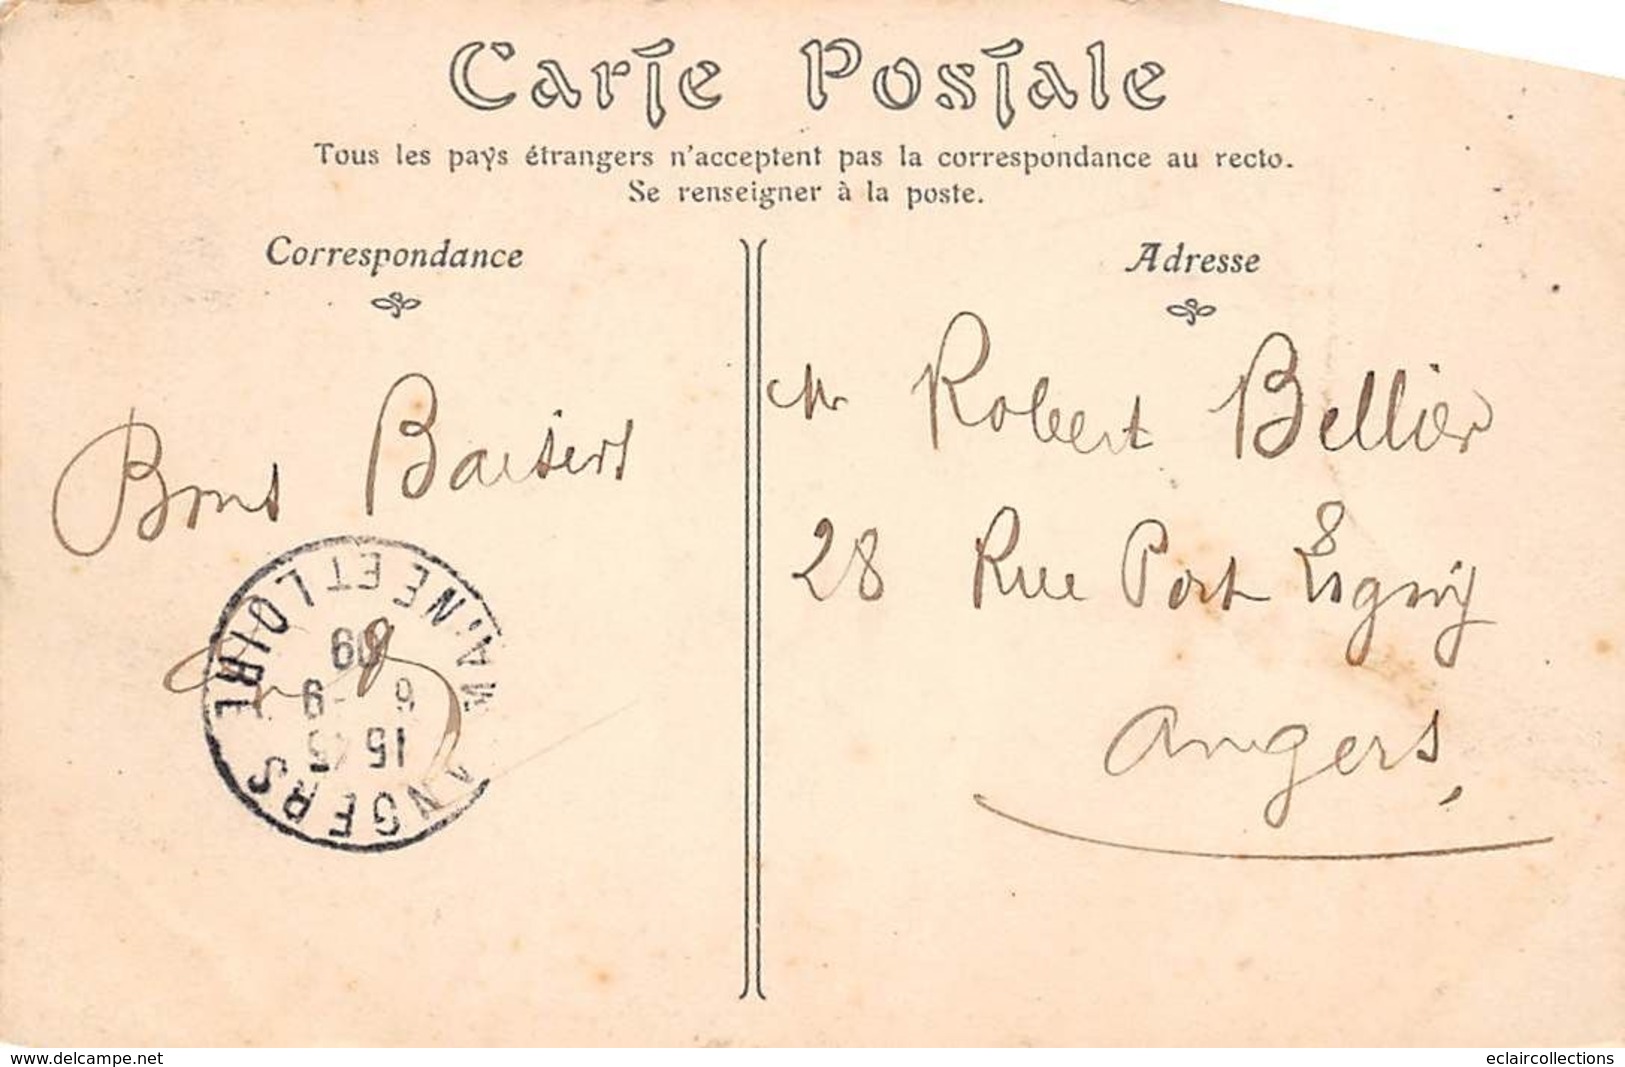 Carte Postale
Tous les pays étrangers n'acceptent pas la correspondance au recto.
Se renseigner à la poste.
Correspondance
Bons Baisers
ANGERS MAINE ET LOIRE
15 45
6 - 9
09
Adresse
Mr Robert Bellier
28 Rue Port Ligny
Angers
www.delcampe.net
eclaircollections